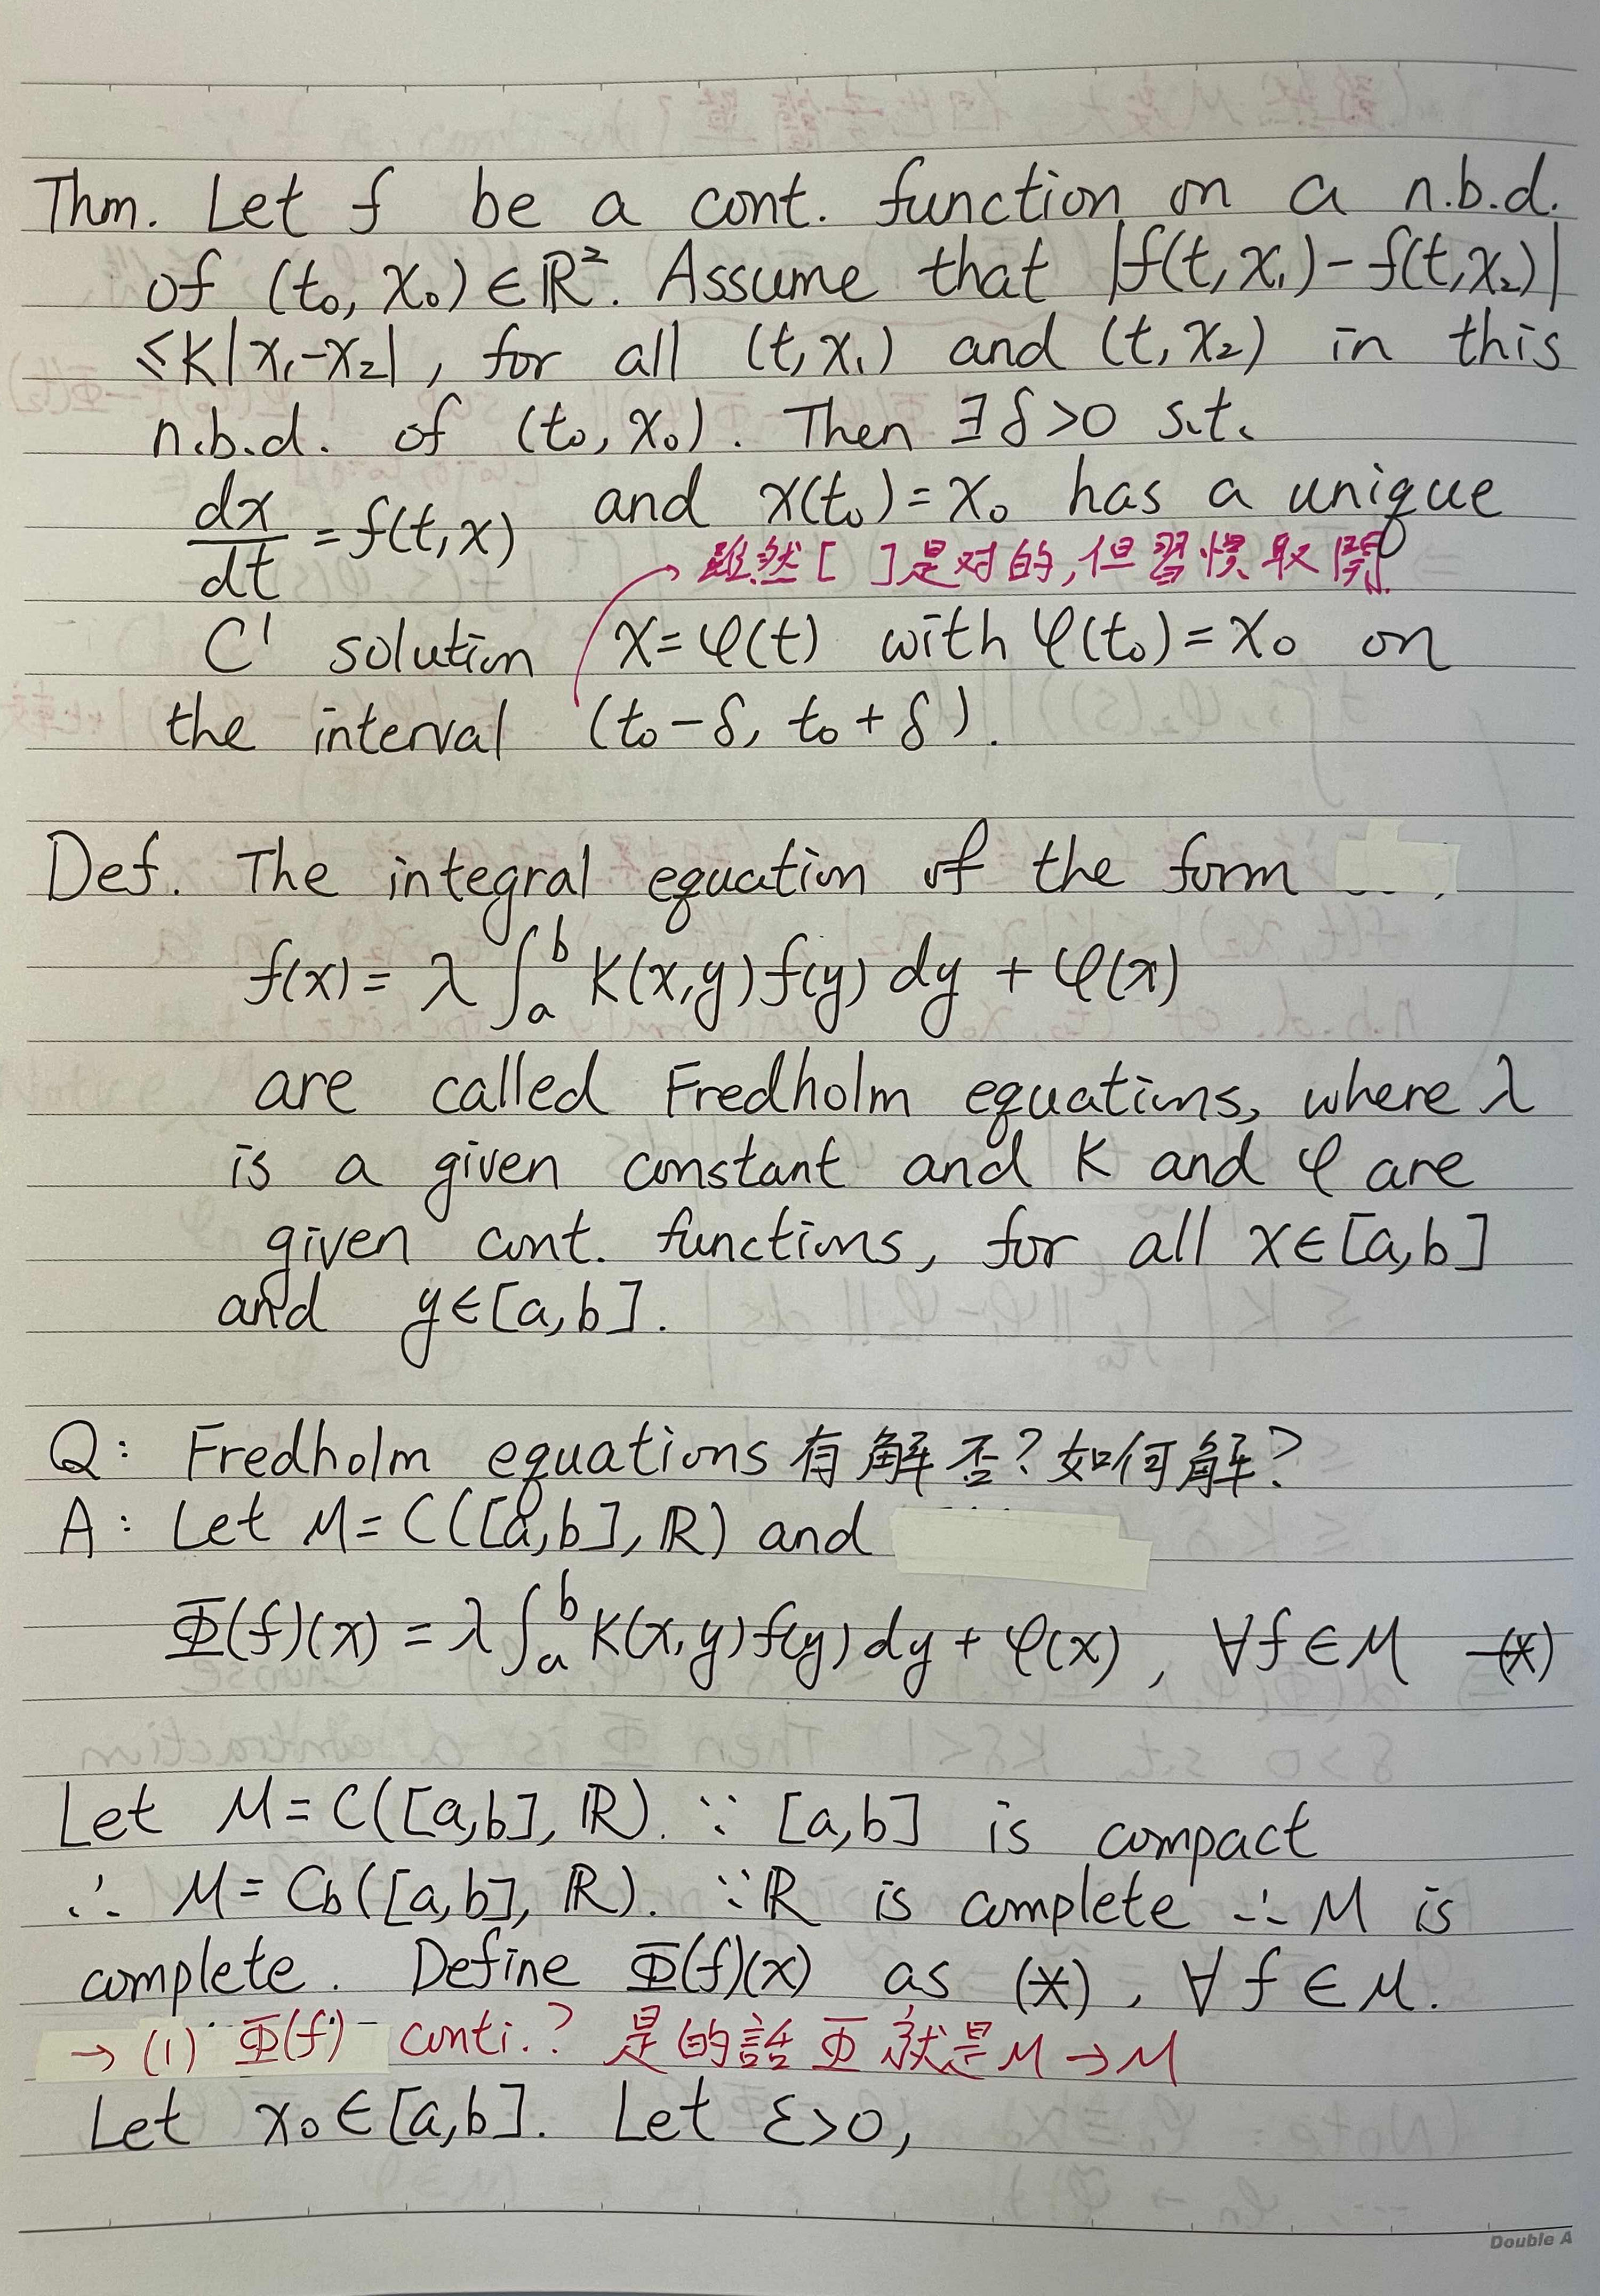 Thm. Let f be a cont. function on a n.b.d.
of (t₀, x₀) ∈ ℝ². Assume that |f(t, x₁) - f(t, x₂)|
≤ K|x₁-x₂|, for all (t, x₁) and (t, x₂) in this
n.b.d. of (t₀, x₀). Then ∃ δ>0 s.t.
dx/dt = f(t, x) and x(t₀) = x₀ has a unique
→ 雖然[ ]是对的,但習慣取開
C¹ solution x = φ(t) with φ(t₀) = x₀ on
the interval (t₀-δ, t₀+δ).
Def. The integral equation of the form
f(x) = λ ∫ₐᵇ K(x,y) f(y) dy + φ(x)
are called Fredholm equations, where λ
is a given constant and K and φ are
given cont. functions, for all x∈[a,b]
and y∈[a,b].
Q: Fredholm equations 有解否?如何解?
A: Let M = C([a,b], ℝ) and
Φ(f)(x) = λ ∫ₐᵇ K(x,y) f(y) dy + φ(x), ∀f∈M —(*)
Let M = C([a,b], ℝ). ∵ [a,b] is compact
∴ M = C_b([a,b], ℝ). ∵ ℝ is complete ∴ M is
complete. Define Φ(f)(x) as (*), ∀f∈M.
→ (1) Φ(f) conti.? 是的話 Φ 就是 M → M
Let x₀∈[a,b]. Let ε>0,
Double A